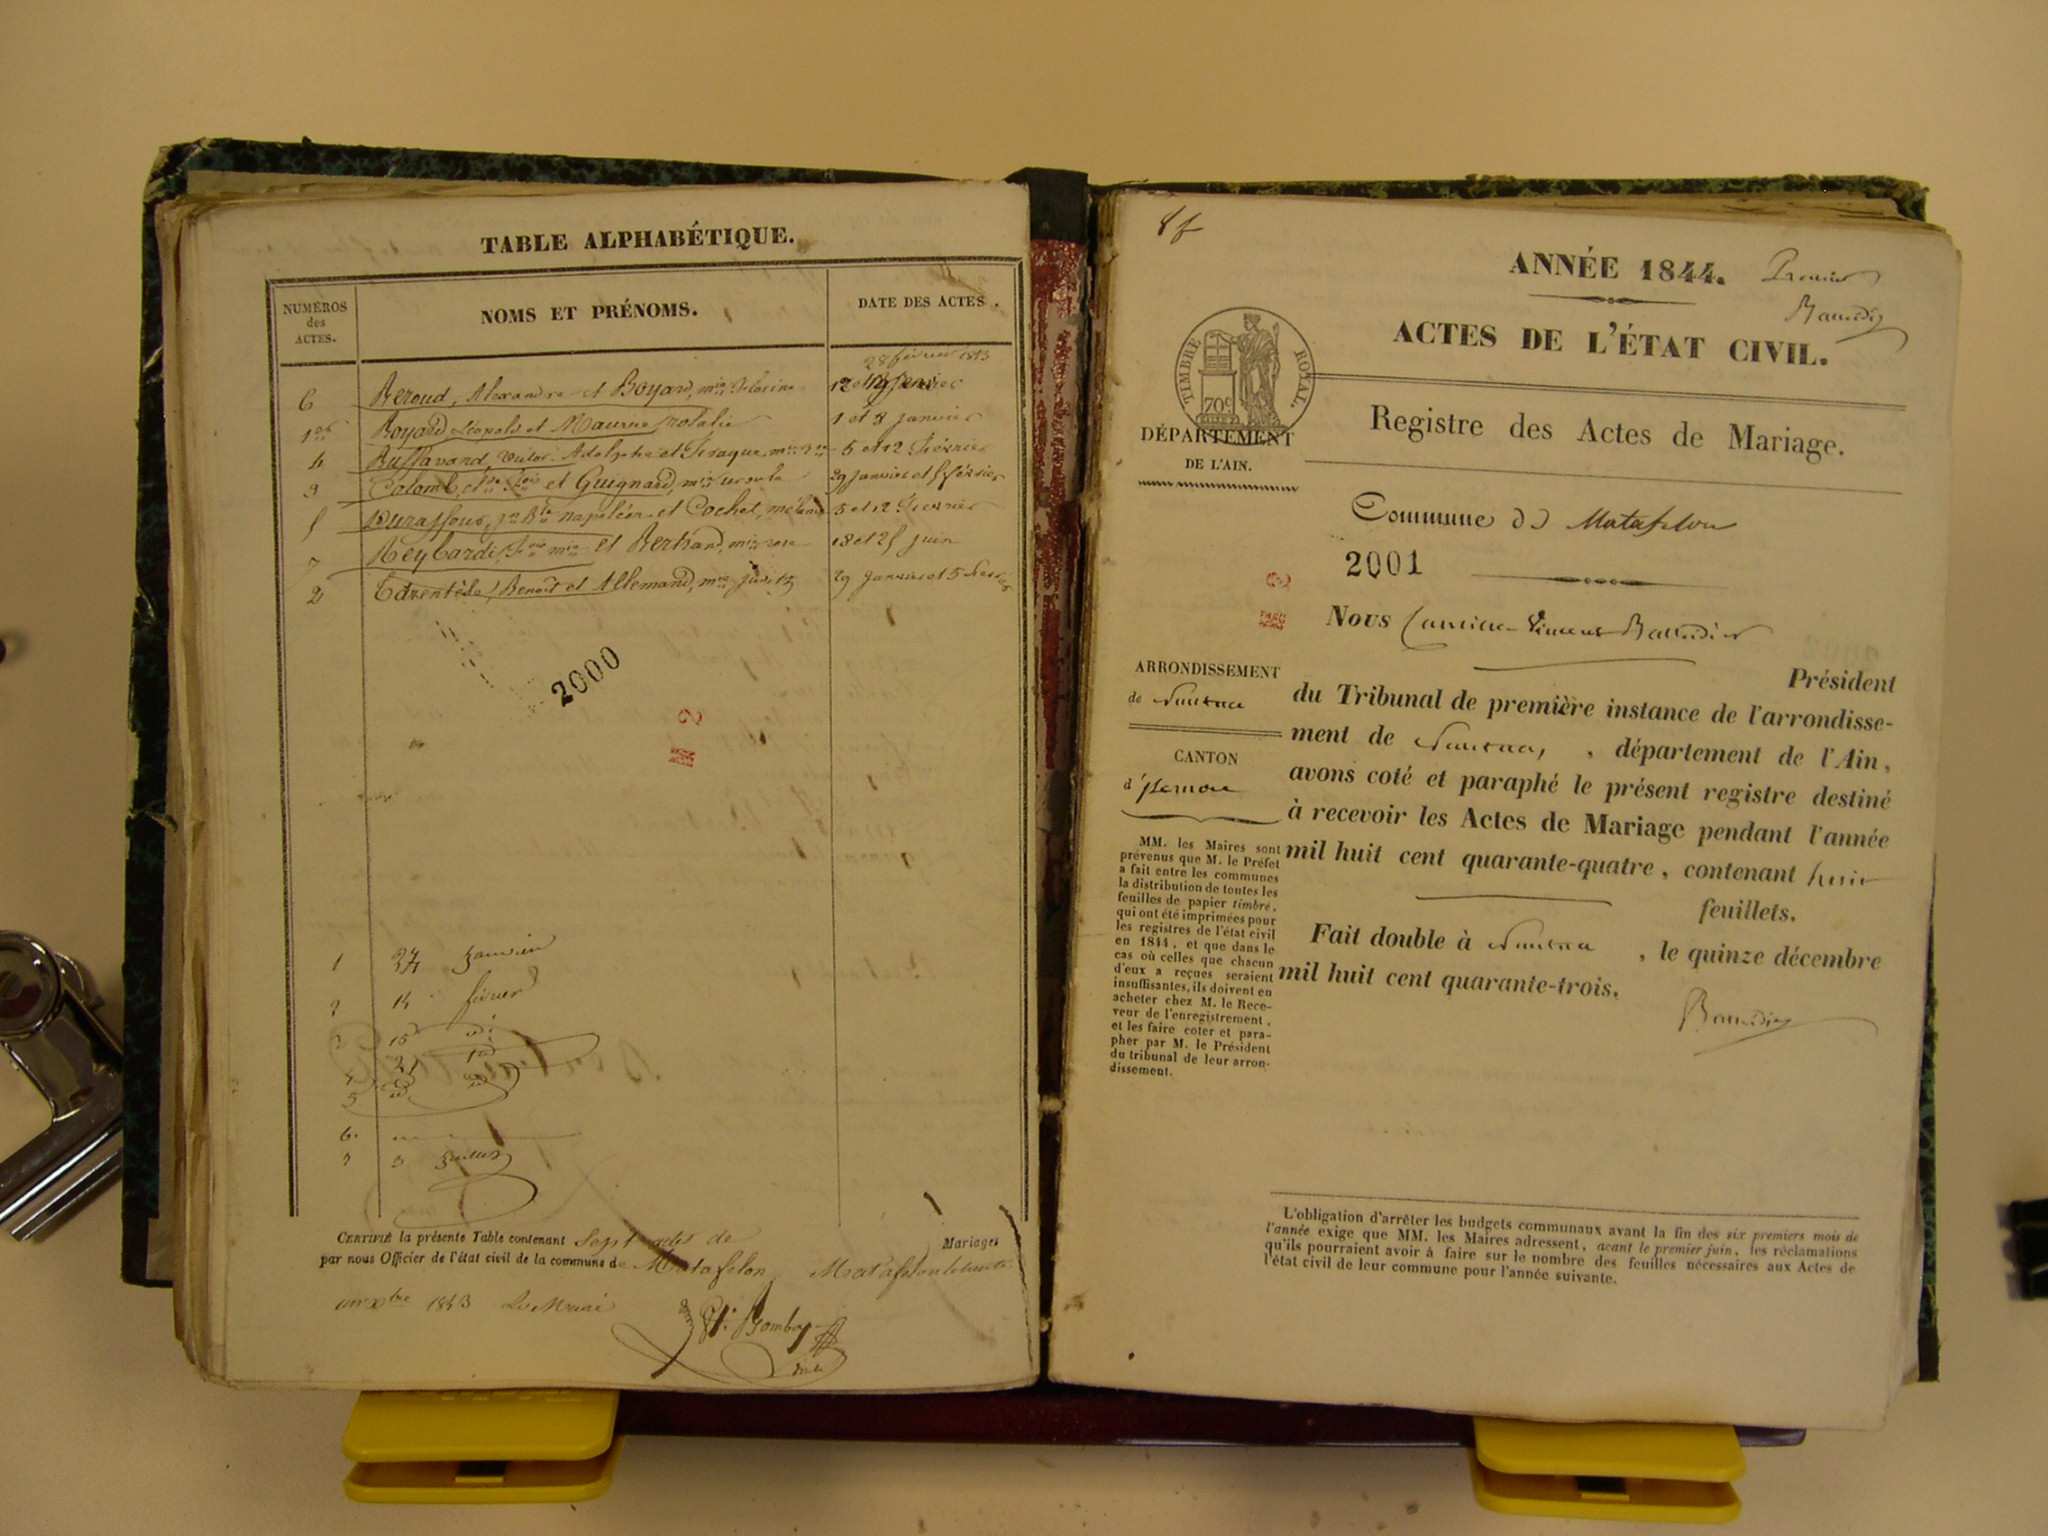 TABLE ALPHABÉTIQUE.
NUMÉROS
des
ACTES.
NOMS ET PRÉNOMS.
DATE DES ACTES.
28 février 1843
6 Beroud, Alexandre et Boyard, mie
1er Boyard Léopold et Maurin
4 Adolphe et 5 et 12 Février
3 Colomb, et Guignard, mie 29 janvier et 5 février
5 napoléon et Cochet, 5 et 12 Février
7 et Bertrand, mie rose 18 et 25 juin
2 Benoît et Allemand, mie 29 janvier et 5
2000
2
1 24 Janvier
2 14 février
3 15 id
4 21 id
5 id id
6
7 3 Juillet
CERTIFIÉ la présente Table contenant Sept actes de Mariages
par nous Officier de l'état civil de la commune de Matafelon Matafelon le trente
un xbre 1843 Le Maire
8 f
ANNÉE 1844. Premier
Baudin
ACTES DE L'ÉTAT CIVIL.
TIMBRE ROYAL.
70c
DÉPARTEMENT
DE L'AIN.
Registre des Actes de Mariage.
Commune de Matafelon
2001
2
Nous
Président
ARRONDISSEMENT
de Nantua
CANTON
d'Izernore
du Tribunal de première instance de l'arrondisse-
ment de Nantua, département de l'Ain,
avons coté et paraphé le présent registre destiné
à recevoir les Actes de Mariage pendant l'année
mil huit cent quarante-quatre, contenant huit
feuillets.
Fait double à Nantua, le quinze décembre
mil huit cent quarante-trois.
MM. les Maires sont
prévenus que M. le Préfet
a fait entre les communes
la distribution de toutes les
feuilles de papier timbré,
qui ont été imprimées pour
les registres de l'état civil
en 1844, et que dans le
cas où celles que chacun
d'eux a reçues seraient
insuffisantes, ils doivent en
acheter chez M. le Rece-
veur de l'enregistrement,
et les faire coter et para-
pher par M. le Président
du tribunal de leur arron-
dissement.
L'obligation d'arrêter les budgets communaux avant la fin des six premiers mois de
l'année exige que MM. les Maires adressent, avant le premier juin, les réclamations
qu'ils pourraient avoir à faire sur le nombre des feuilles nécessaires aux Actes de
l'état civil de leur commune pour l'année suivante.